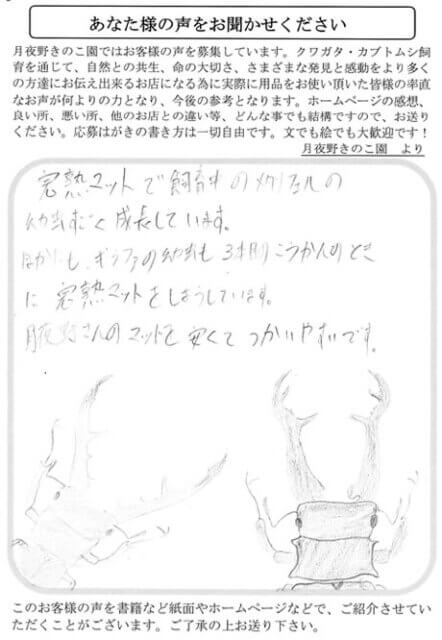 あなた様の声をお聞かせください
月夜野きのこ園ではお客様の声を募集しています。クワガタ・カブトムシ飼
育を通じて、自然との共生、命の大切さ、さまざまな発見と感動をより多く
の方達にお伝え出来るお店になる為に実際に用品をお使い頂いた皆様の率直
なお声が何よりの力となり、今後の参考となります。ホームページの感想、
良い所、悪い所、他のお店との違い等、どんな事でも結構ですので、お送り
ください。応募はがきの書き方は一切自由です。文でも絵でも大歓迎です！
月夜野きのこ園　より
完熟マットで飼育中のメタリフェルの
幼虫すごく成長しています。
ほかにも、ギラファの幼虫も 3本目こうかんのとき
に完熟マットをしようしています。
月夜野さんのマットを安くてつかいやすいです。
このお客様の声を書籍など紙面やホームページなどで、ご紹介させてい
ただくことがございます。ご了承の上お送り下さい。